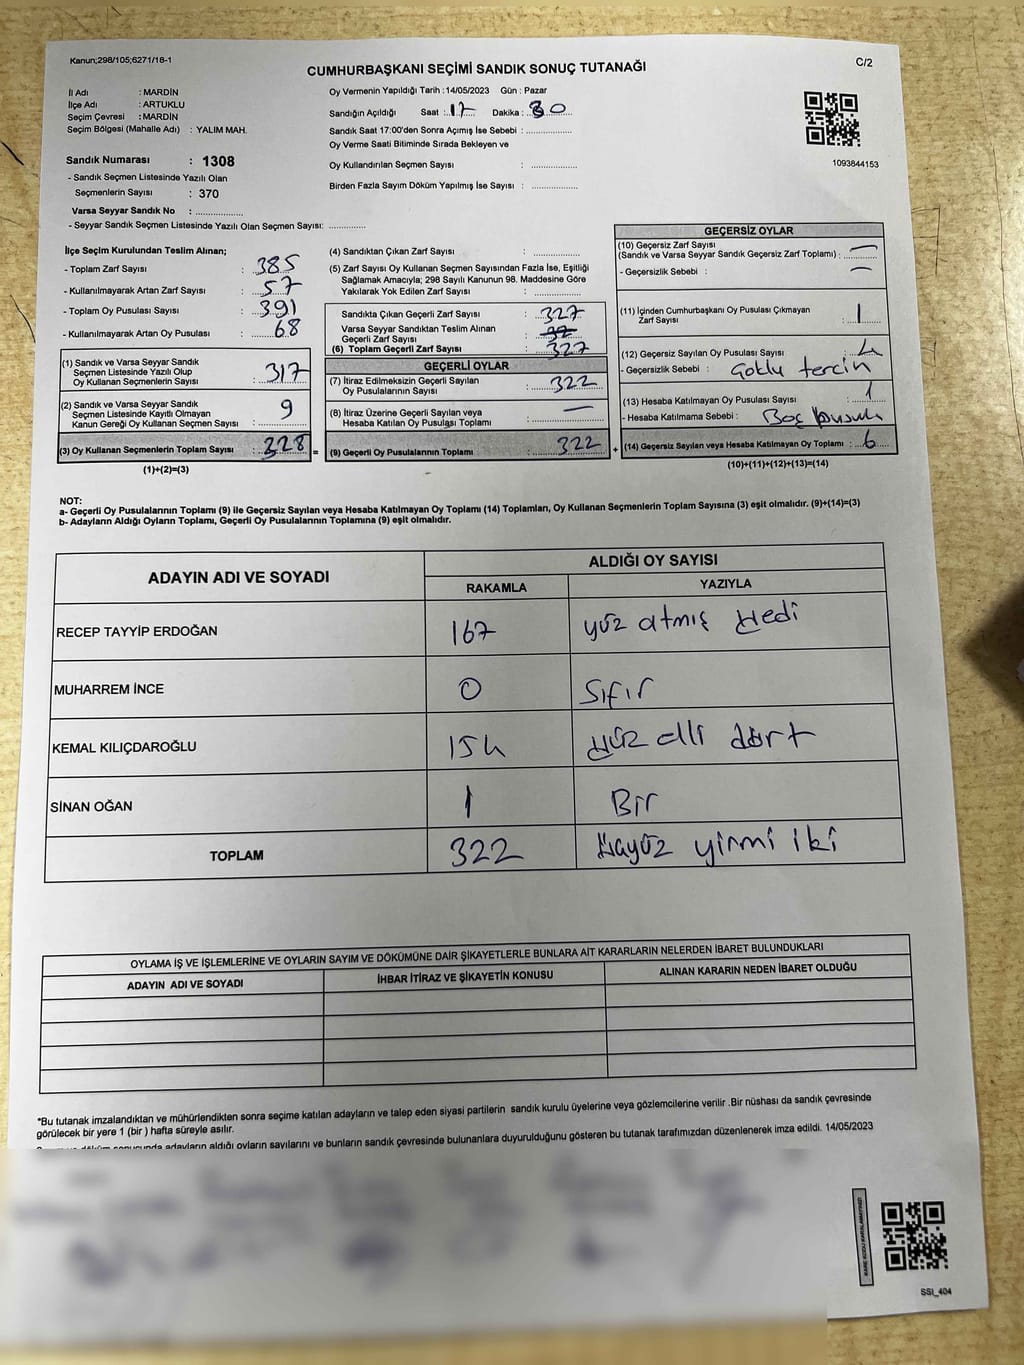 Kanun;298/105;6271/18-1
C/2
CUMHURBAŞKANI SEÇİMİ SANDIK SONUÇ TUTANAĞI
İl Adı : MARDİN
İlçe Adı : ARTUKLU
Seçim Çevresi : MARDİN
Seçim Bölgesi (Mahalle Adı) : YALIM MAH.
Sandık Numarası : 1308
- Sandık Seçmen Listesinde Yazılı Olan
Seçmenlerin Sayısı : 370
Varsa Seyyar Sandık No : ....................
- Seyyar Sandık Seçmen Listesinde Yazılı Olan Seçmen Sayısı: ...............
Oy Vermenin Yapıldığı Tarih :14/05/2023 Gün : Pazar
Sandığın Açıldığı Saat : 17 Dakika : 30
Sandık Saat 17:00'den Sonra Açımış İse Sebebi : ...............
Oy Verme Saati Bitiminde Sırada Bekleyen ve
Oy Kullandırılan Seçmen Sayısı : ...............
Birden Fazla Sayım Döküm Yapılmış İse Sayısı : ...............
1093844153
İlçe Seçim Kurulundan Teslim Alınan;
- Toplam Zarf Sayısı : 385
- Kullanılmayarak Artan Zarf Sayısı : 57
- Toplam Oy Pusulası Sayısı : 391
- Kullanılmayarak Artan Oy Pusulası : 68
(1) Sandık ve Varsa Seyyar Sandık
Seçmen Listesinde Yazılı Olup
Oy Kullanan Seçmenlerin Sayısı : 317
(2) Sandık ve Varsa Seyyar Sandık
Seçmen Listesinde Kayıtlı Olmayan
Kanun Gereği Oy Kullanan Seçmen Sayısı : 9
(3) Oy Kullanan Seçmenlerin Toplam Sayısı : 328
(1)+(2)=(3)
(4) Sandıktan Çıkan Zarf Sayısı : ...............
(5) Zarf Sayısı Oy Kullanan Seçmen Sayısından Fazla İse, Eşitliği
Sağlamak Amacıyla; 298 Sayılı Kanunun 98. Maddesine Göre
Yakılarak Yok Edilen Zarf Sayısı : ...............
Sandıkta Çıkan Geçerli Zarf Sayısı : 327
Varsa Seyyar Sandıktan Teslim Alınan
Geçerli Zarf Sayısı :
(6) Toplam Geçerli Zarf Sayısı : 327
GEÇERLİ OYLAR
(7) İtiraz Edilmeksizin Geçerli Sayılan
Oy Pusulalarının Sayısı : 322
(8) İtiraz Üzerine Geçerli Sayılan veya
Hesaba Katılan Oy Pusulası Toplamı : —
(9) Geçerli Oy Pusulalarının Toplamı : 322
GEÇERSİZ OYLAR
(10) Geçersiz Zarf Sayısı
(Sandık ve Varsa Seyyar Sandık Geçersiz Zarf Toplamı) : —
- Geçersizlik Sebebi : —
(11) İçinden Cumhurbaşkanı Oy Pusulası Çıkmayan
Zarf Sayısı : 1
(12) Geçersiz Sayılan Oy Pusulası Sayısı : 4
- Geçersizlik Sebebi : Çoklu tercih
(13) Hesaba Katılmayan Oy Pusulası Sayısı : 1
- Hesaba Katılmama Sebebi : Boş pusula
(14) Geçersiz Sayılan veya Hesaba Katılmayan Oy Toplamı : 6
(10)+(11)+(12)+(13)=(14)
NOT:
a- Geçerli Oy Pusulalarının Toplamı (9) ile Geçersiz Sayılan veya Hesaba Katılmayan Oy Toplamı (14) Toplamları, Oy Kullanan Seçmenlerin Toplam Sayısına (3) eşit olmalıdır. (9)+(14)=(3)
b- Adayların Aldığı Oyların Toplamı, Geçerli Oy Pusulalarının Toplamına (9) eşit olmalıdır.
ADAYIN ADI VE SOYADI
ALDIĞI OY SAYISI
RAKAMLA YAZIYLA
RECEP TAYYİP ERDOĞAN 167 yüz atmış yedi
MUHARREM İNCE 0 Sıfır
KEMAL KILIÇDAROĞLU 154 yüz elli dört
SİNAN OĞAN 1 Bir
TOPLAM 322 yirmi iki
OYLAMA İŞ VE İŞLEMLERİNE VE OYLARIN SAYIM VE DÖKÜMÜNE DAİR ŞİKAYETLERLE BUNLARA AİT KARARLARIN NELERDEN İBARET BULUNDUKLARI
ADAYIN ADI VE SOYADI İHBAR İTİRAZ VE ŞİKAYETİN KONUSU ALINAN KARARIN NEDEN İBARET OLDUĞU
*Bu tutanak imzalandıktan ve mühürlendikten sonra seçime katılan adayların ve talep eden siyasi partilerin sandık kurulu üyelerine veya gözlemcilerine verilir .Bir nüshası da sandık çevresinde
görülecek bir yere 1 (bir ) hafta süreyle asılır.
döküm sonucunda adayların aldığı oyların sayılarını ve bunların sandık çevresinde bulunanlara duyurulduğunu gösteren bu tutanak tarafımızdan düzenlenerek imza edildi. 14/05/2023
KARE KODU KARALAMAYINIZ!
SSI_404